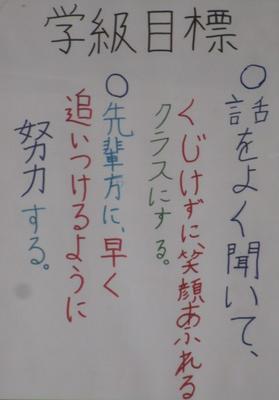 学級目標
○話をよく聞いて、
くじけずに、笑顔あふれる
クラスにする。
○先輩方に、早く
追いつけるように
努力する。